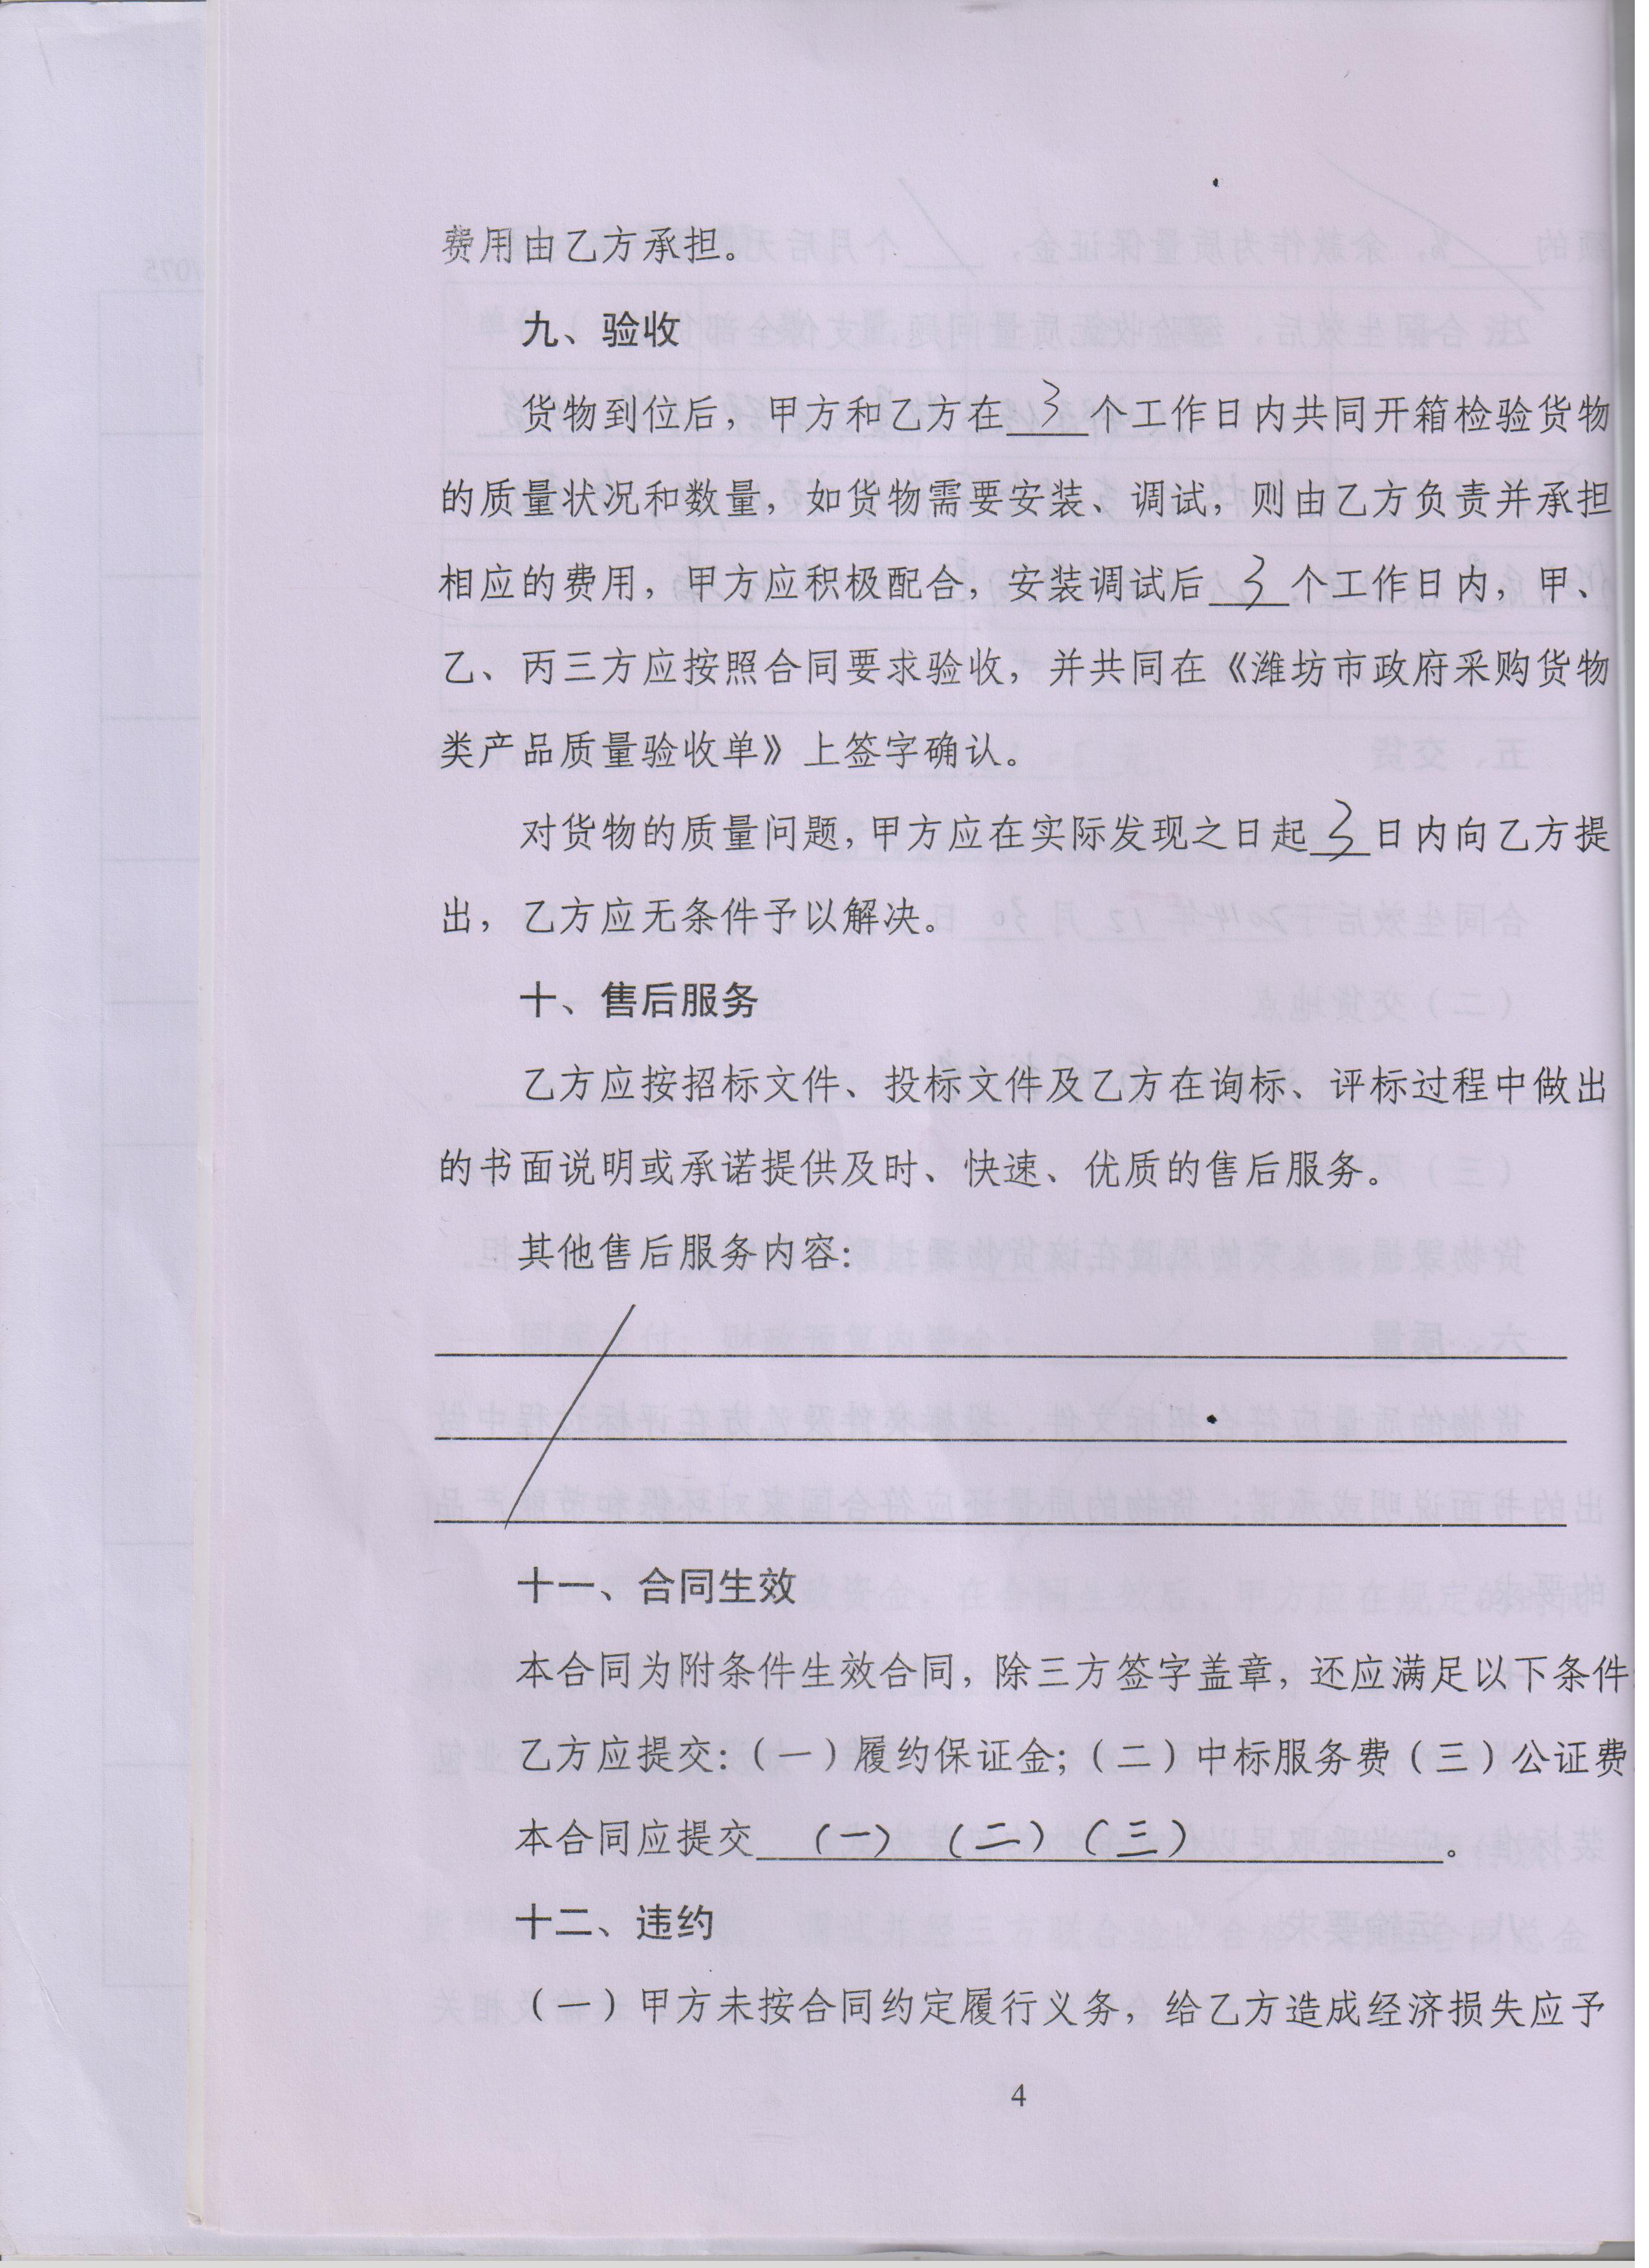 费用由乙方承担。
九、验收
货物到位后，甲方和乙方在 3 个工作日内共同开箱检验货物
的质量状况和数量，如货物需要安装、调试，则由乙方负责并承担
相应的费用，甲方应积极配合，安装调试后 3 个工作日内，甲、
乙、丙三方应按照合同要求验收，并共同在《潍坊市政府采购货物
类产品质量验收单》上签字确认。
对货物的质量问题，甲方应在实际发现之日起 3 日内向乙方提
出，乙方应无条件予以解决。
十、售后服务
乙方应按招标文件、投标文件及乙方在询标、评标过程中做出
的书面说明或承诺提供及时、快速、优质的售后服务。
其他售后服务内容：
十一、合同生效
本合同为附条件生效合同，除三方签字盖章，还应满足以下条件
乙方应提交：（一）履约保证金；（二）中标服务费（三）公证费
本合同应提交 （一）（二）（三） 。
十二、违约
（一）甲方未按合同约定履行义务，给乙方造成经济损失应予
4